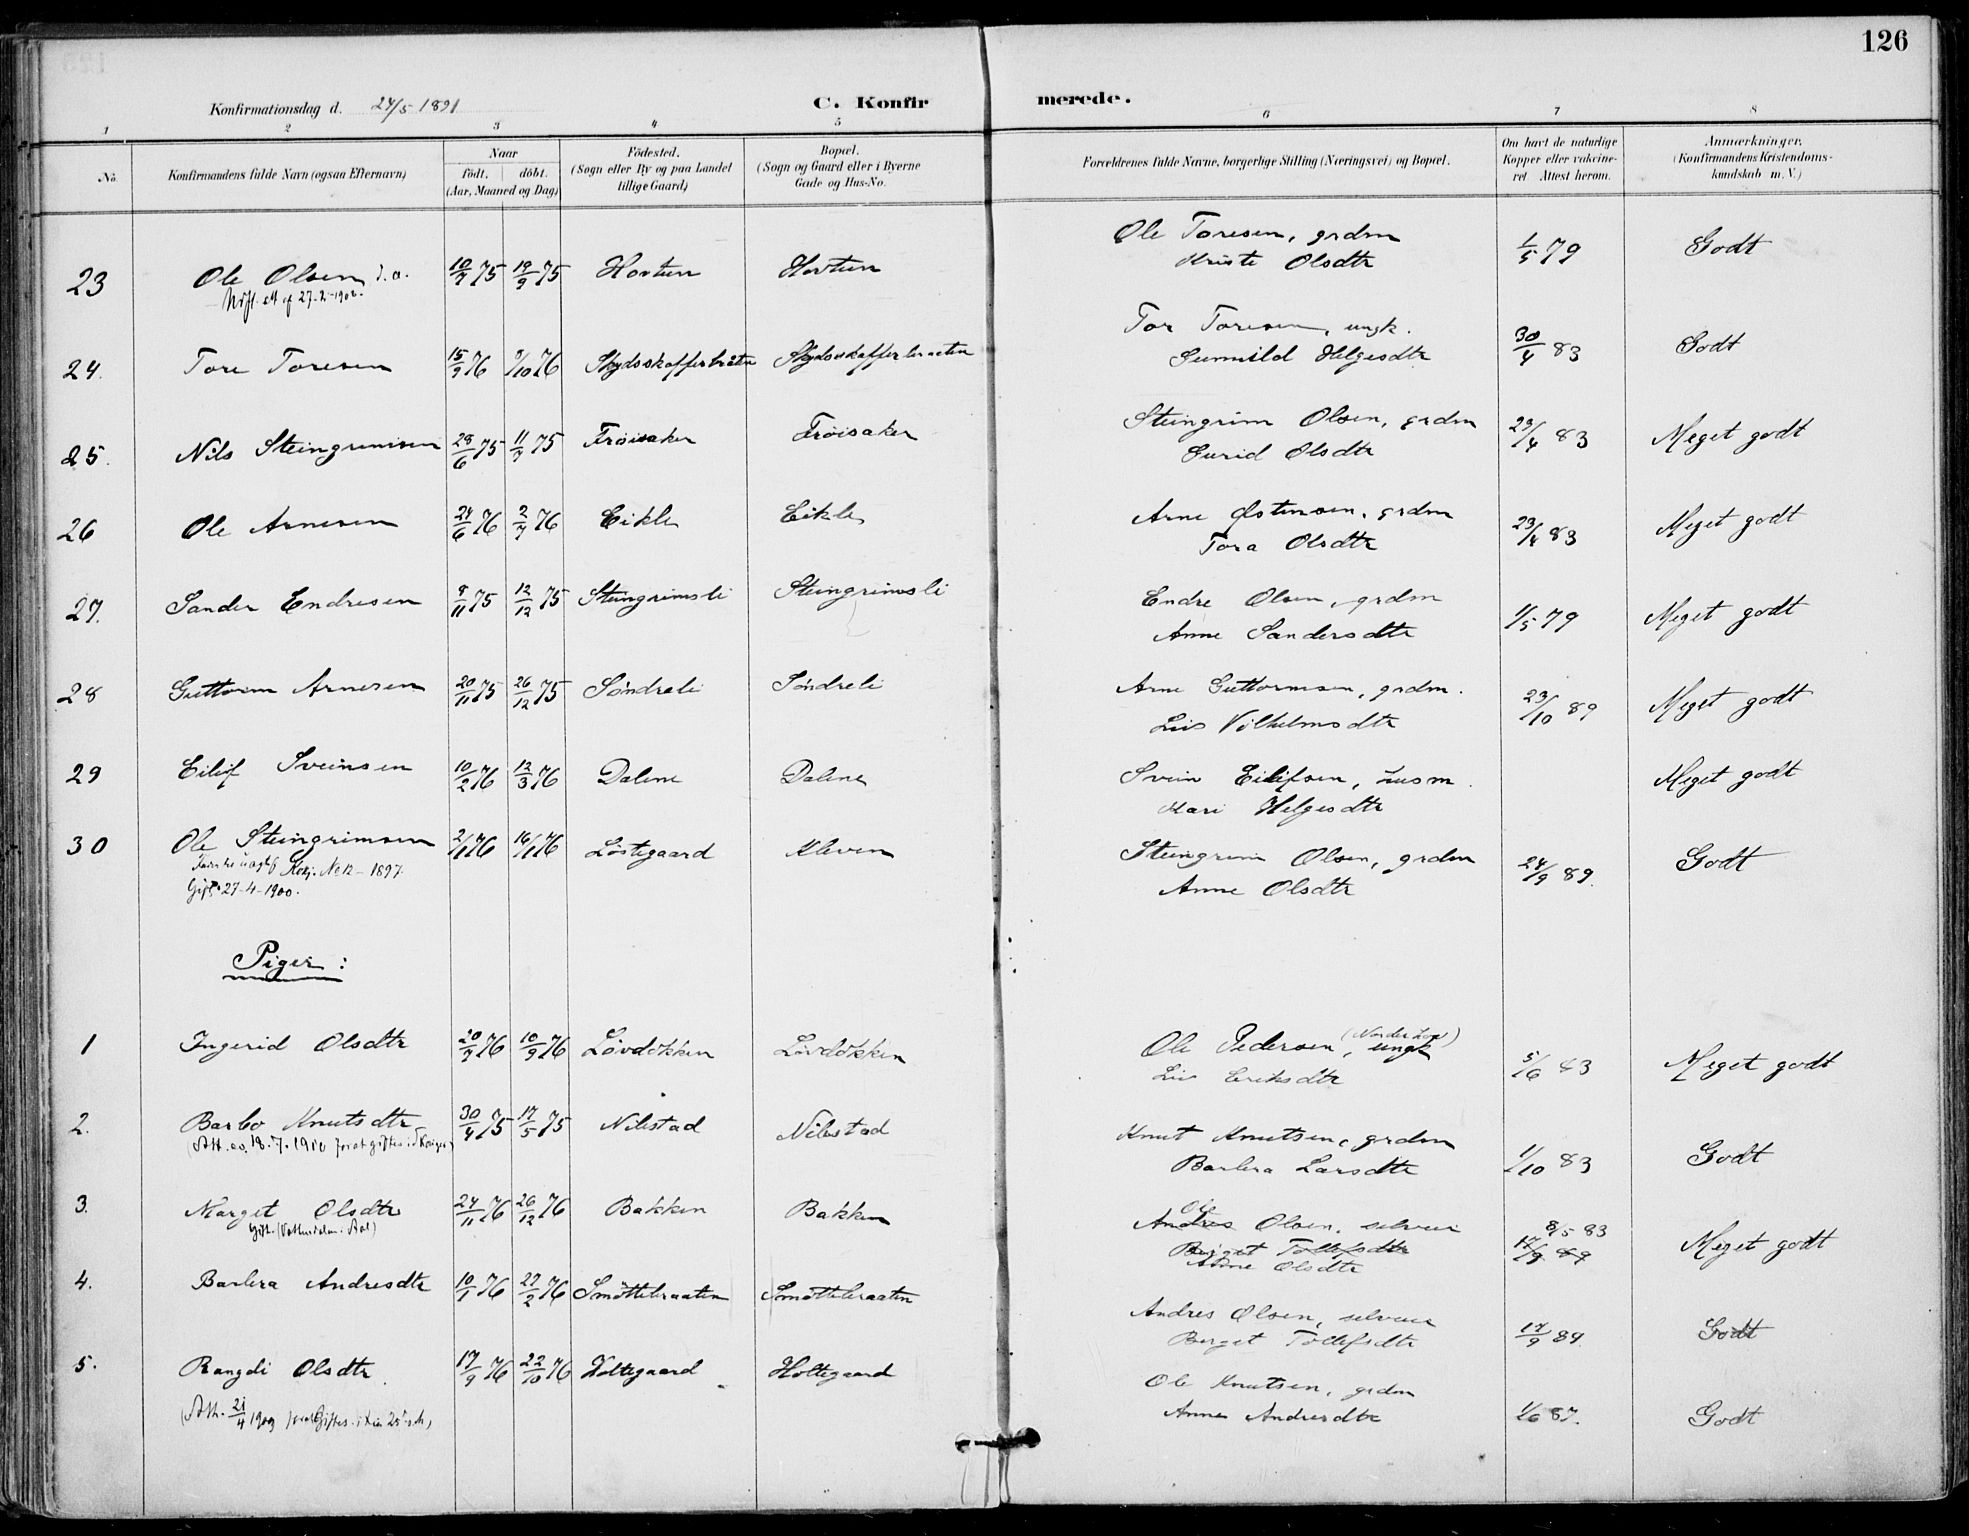 126
Konfirmationsdag d. 24/5 1891
C. Konfirmerede.
1 2 3 4 5 6 7 8
No. Konfirmandens fulde Navn (ogsaa Efternavn) Naar født. døbt. (Aar, Maaned og Dag) Fødested. (Sogn eller By og paa Landet tillige Gaard) Bopæl. (Sogn og Gaard eller i Byerne Gade og Hus-No. Forældrenes fulde Navne, borgerlige Stilling (Næringsvei) og Bopæl. Om havt de naturlige Kopper eller vakcineret Attest herom. Anmærkninger. (Konfirmandens Kristendomskundskab m. V.)
Ole Toresen, grdm
23 Ole Olsen 10/7 75 19/9 75 Hovtun Hovtun Kristi Olsdtr 1/5 79 Godt
27-2-1902.
Tor Toresen, ungk.
24. Tore Toresen 15/9 76 /10 76 Skydsskafferbråten Skydsskafferbraaten Gunnild Helgesdtr 30/4 83 Godt
Steingrim Olsen, grdm
25. Nils Steingrimsen 28/6 75 11/7 75 Frøisaker Frøisaker Gurid Olsdtr 23/4 83 Meget godt
Arne Østensen, grdm
26 Ole Arnesen 24/6 76 2/7 76 Eikle Eikle Tora Olsdtr 23/4 83 Meget godt
Endre Olsen, grdm
27. Sander Endresen 9/11 75 12/12 75 Steingrimsli Steingrimsli Anne Sandersdtr 1/5 79 Meget godt
Arne Guttormsen, grdm.
28 Guttorm Arnesen 20/11 75 26/12 75 Søndreli Søndreli Liv Vilhelmsdtr 23/10 89 Meget godt
29 Eilif Sveinsen 10/2 76 12/3 76 Dalene Dalene Svein Eilifsen, husm. Meget godt
Kari Helgesdtr
30 Ole Steingrimsen 2/1 76 16/1 76 Løstegaard Kleven Steingrim Olsen, grdm 24/9 89. Godt
No 12 - 1897.
Gift 27-4-1900.
Anne Olsdtr
Piger:
1 Ingerid Olsdtr 20/7 76 10/9 76 Løvdokken Løvdokken Ole Pedersen, (Norderhov) ungk 5/6 83 Meget godt
Liv Eriksdtr
2. Barbo Knutsdtr 30/4 75 17/5 75 Nilsstad Nilsstad Knut Knutsen, grdm
(Att. av. 18.7.1910 for at giftes i
Barbra Larsdtr 1/10 83 Godt
3. Marget Olsdtr 24/11 76 26/12 76 Bakken Bakken Ole
Andres Olsen, selveier 8/5 83 Meget godt
Gift. (Vatsendalen. Aal)
Birget Tollefsdtr 17/9 89
Anne Olsdtr
4. Barbra Andresdtr 10/1 76 27/2 76 Smøttebraaten Smøttebraaten
Andres Olsen, selveier
Berget Tollefsdtr 17/9 89. Godt
5. Rangdi Olsdtr 17/9 76 22/10 76 Holtegaard Holtegaard
Ole Knutsen, grdm
(Att. 21/4 1909 for at Giftes
Anne Andresdtr 1/6 87. Godt